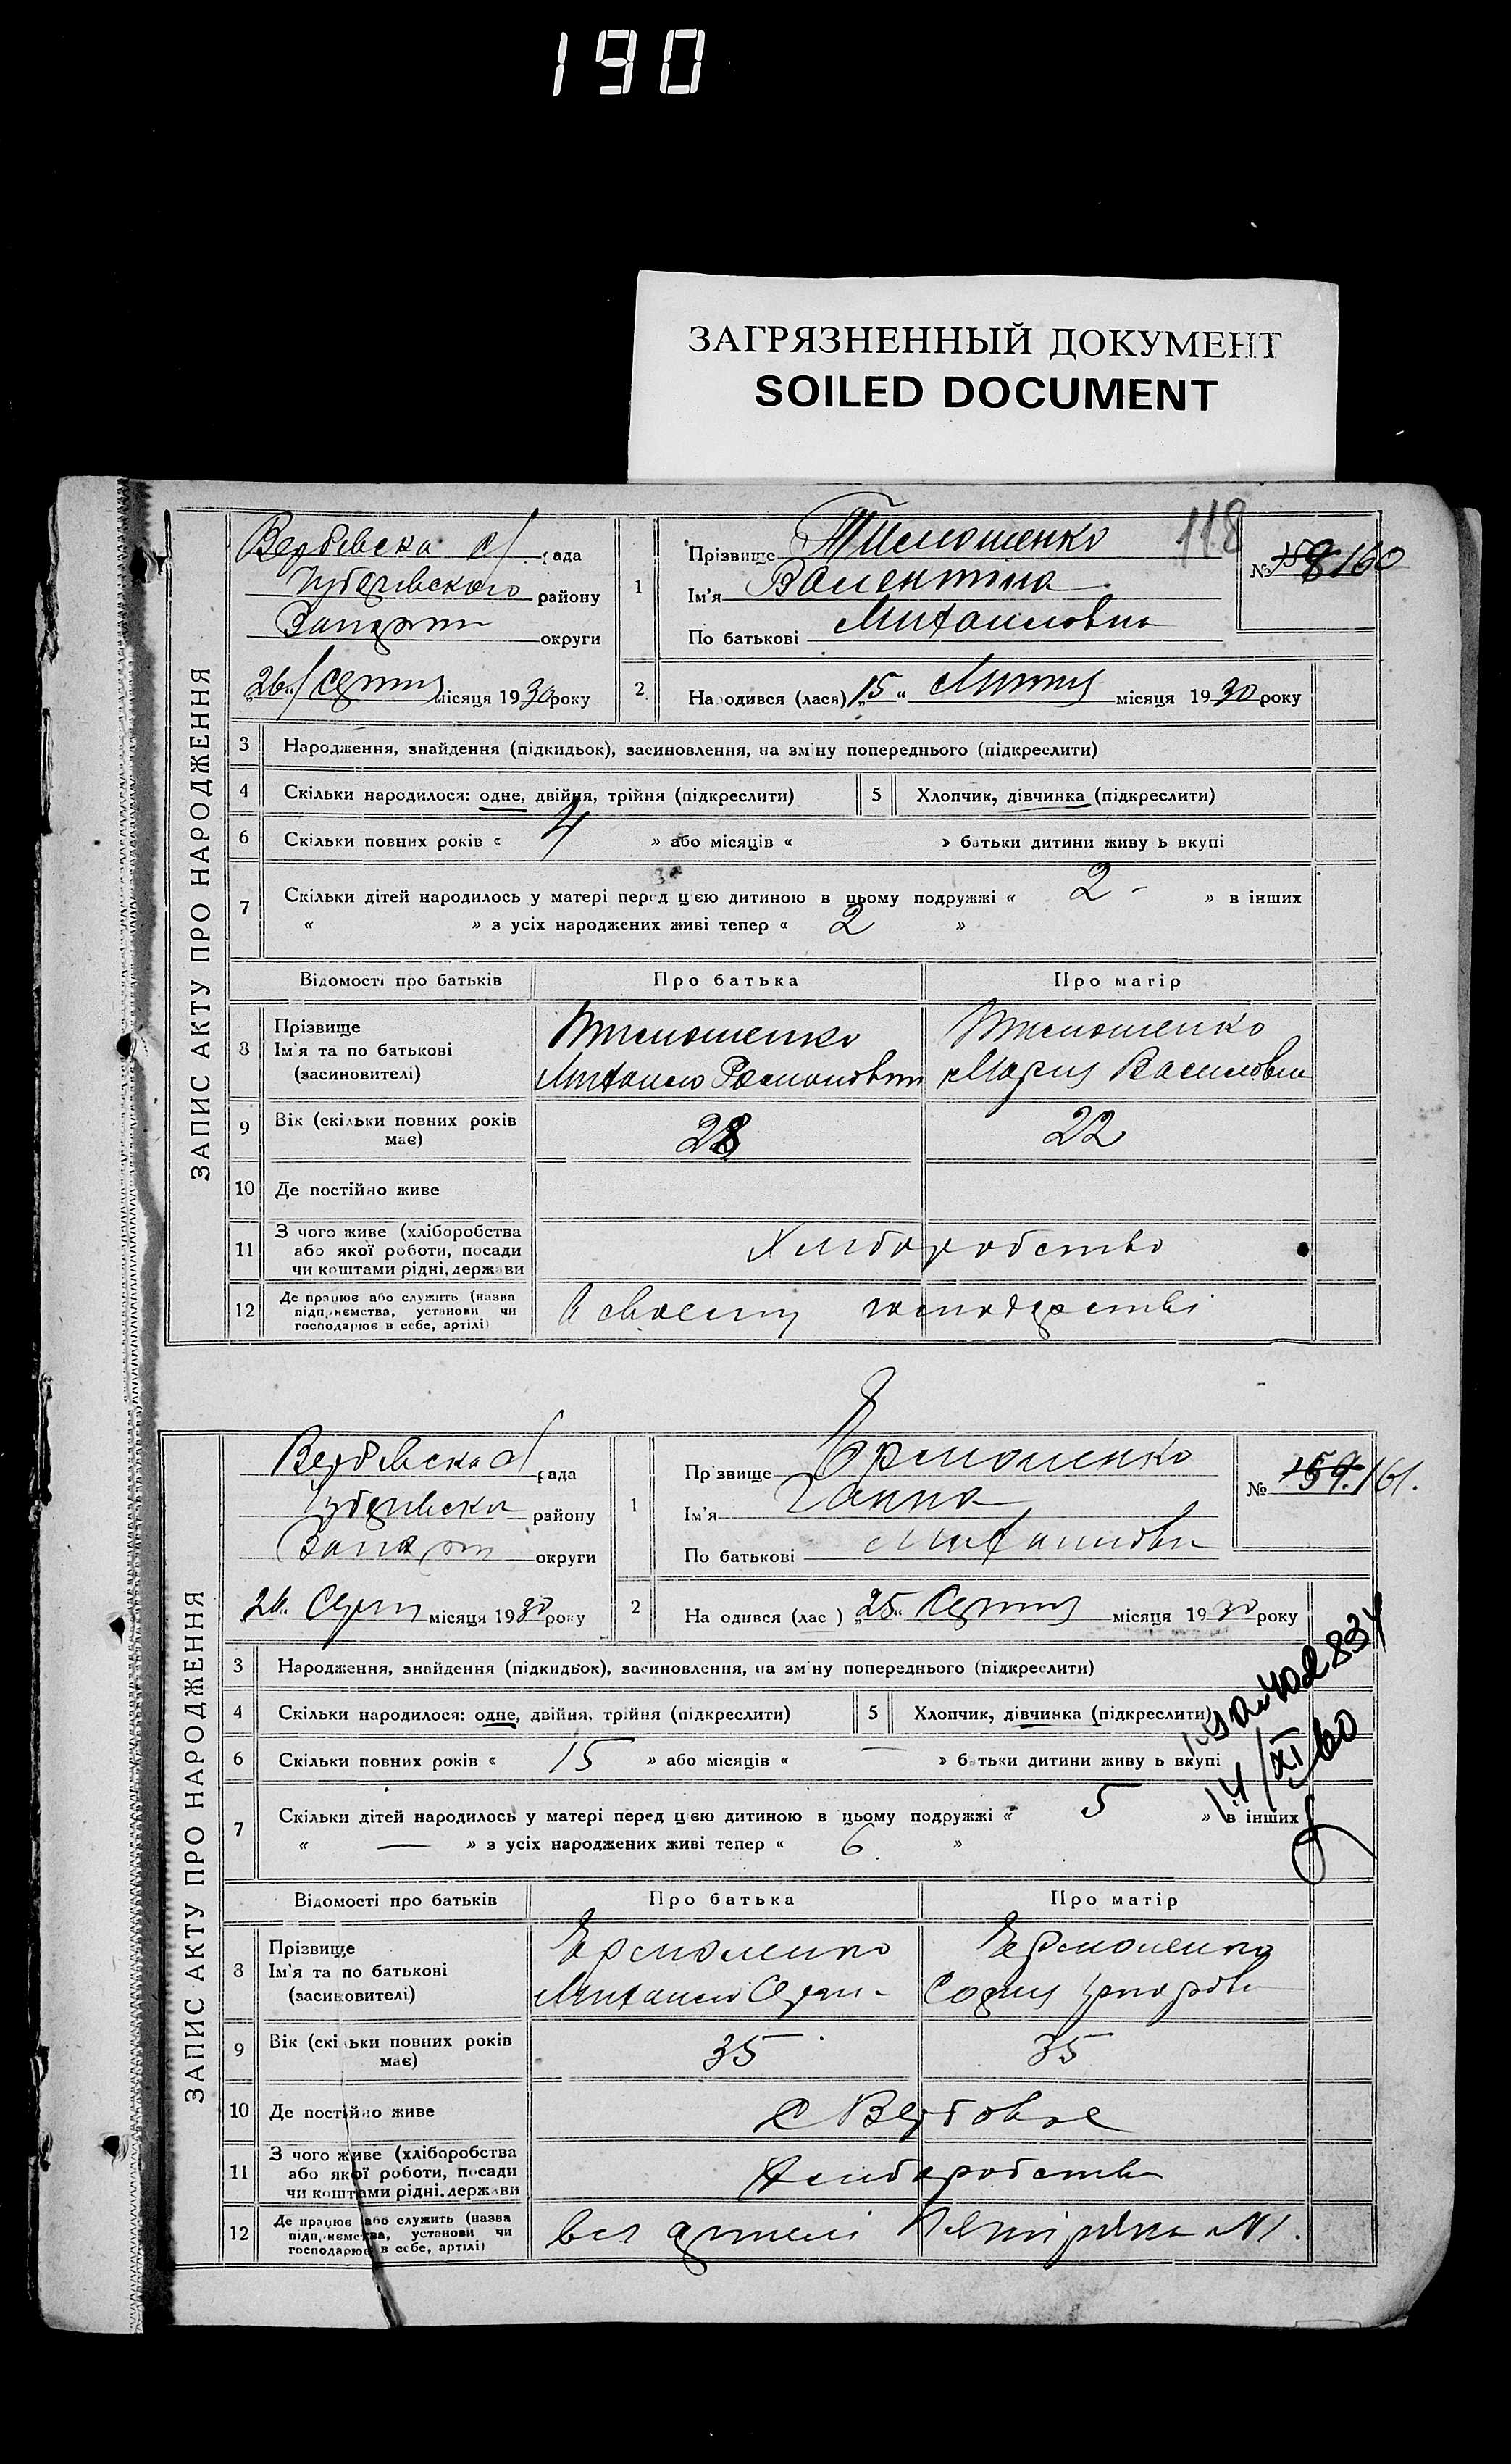 190
ЗАГРЯЗНЕННЫЙ ДОКУМЕНТ
SOILED DOCUMENT
118
ЗАПИС АКТУ ПРО НАРОДЖЕННЯ
Вербівська с/рада
району
округи
„26“ Серпня місяця 1930 року
1
Прізвище Тимошенко
Ім'я Валентина
По батькові Михаиловна
№ 158 160
2 Народився (лася) „15“ Липня місяця 1930 року
3 Народження, знайдення (підкидьок), засиновлення, на зміну попереднього (підкреслити)
4 Скільки народилося: одне, двійня, трійня (підкреслити) 5 Хлопчик, дівчинка (підкреслити)
6 Скільки повних років « 4 » або місяців « » батьки дитини живуть вкупі
7 Скільки дітей народилось у матері перед цією дитиною в цьому подружжі « 2 - » в інших
« » з усіх народжених живі тепер « 2 »
Відомості про батьків Про батька Про матір
8 Прізвище Тимошенко Тимошенко
Ім'я та по батькові
(засиновителі) Михаило Романович Мария Василовна
9 Вік (скільки повних років має) 28 22
10 Де постійно живе
11 З чого живе (хліборобства
або якої роботи, посади
чи коштами рідні, держави Хліборобство
12 Де працює або служить (назва
підприємства, установи чи
господарює в себе, артілі) В своєму господарстві
ЗАПИС АКТУ ПРО НАРОДЖЕННЯ
Вербівська с/рада
району
округи
26 Серпня місяця 1930 року
1
Прізвище Ермоленко
Ім'я Ганна
По батькові Михаиловн
№ 159. 161.
2 Народився (лася) „25“ Серпня місяця 1930 року
3 Народження, знайдення (підкидьок), засиновлення, на зміну попереднього (підкреслити)
4 Скільки народилося: одне, двійня, трійня (підкреслити) 5 Хлопчик, дівчинка (підкреслити)
834
14/XI 60
6 Скільки повних років « 15 » або місяців « — » батьки дитини живуть вкупі
7 Скільки дітей народилось у матері перед цією дитиною в цьому подружжі « 5 » в інших
« — » з усіх народжених живі тепер « 6 »
Відомості про батьків Про батька Про матір
8 Прізвище Ермоленко Ермоленко
Ім'я та по батькові
(засиновителі) Михаило
9 Вік (скільки повних років має) 35 35
10 Де постійно живе с Вербовое
11 З чого живе (хліборобства
або якої роботи, посади
чи коштами рідні, держави Хліборобство
12 Де працює або служить (назва
підприємства, установи чи
господарює в себе, артілі) артілі №1.